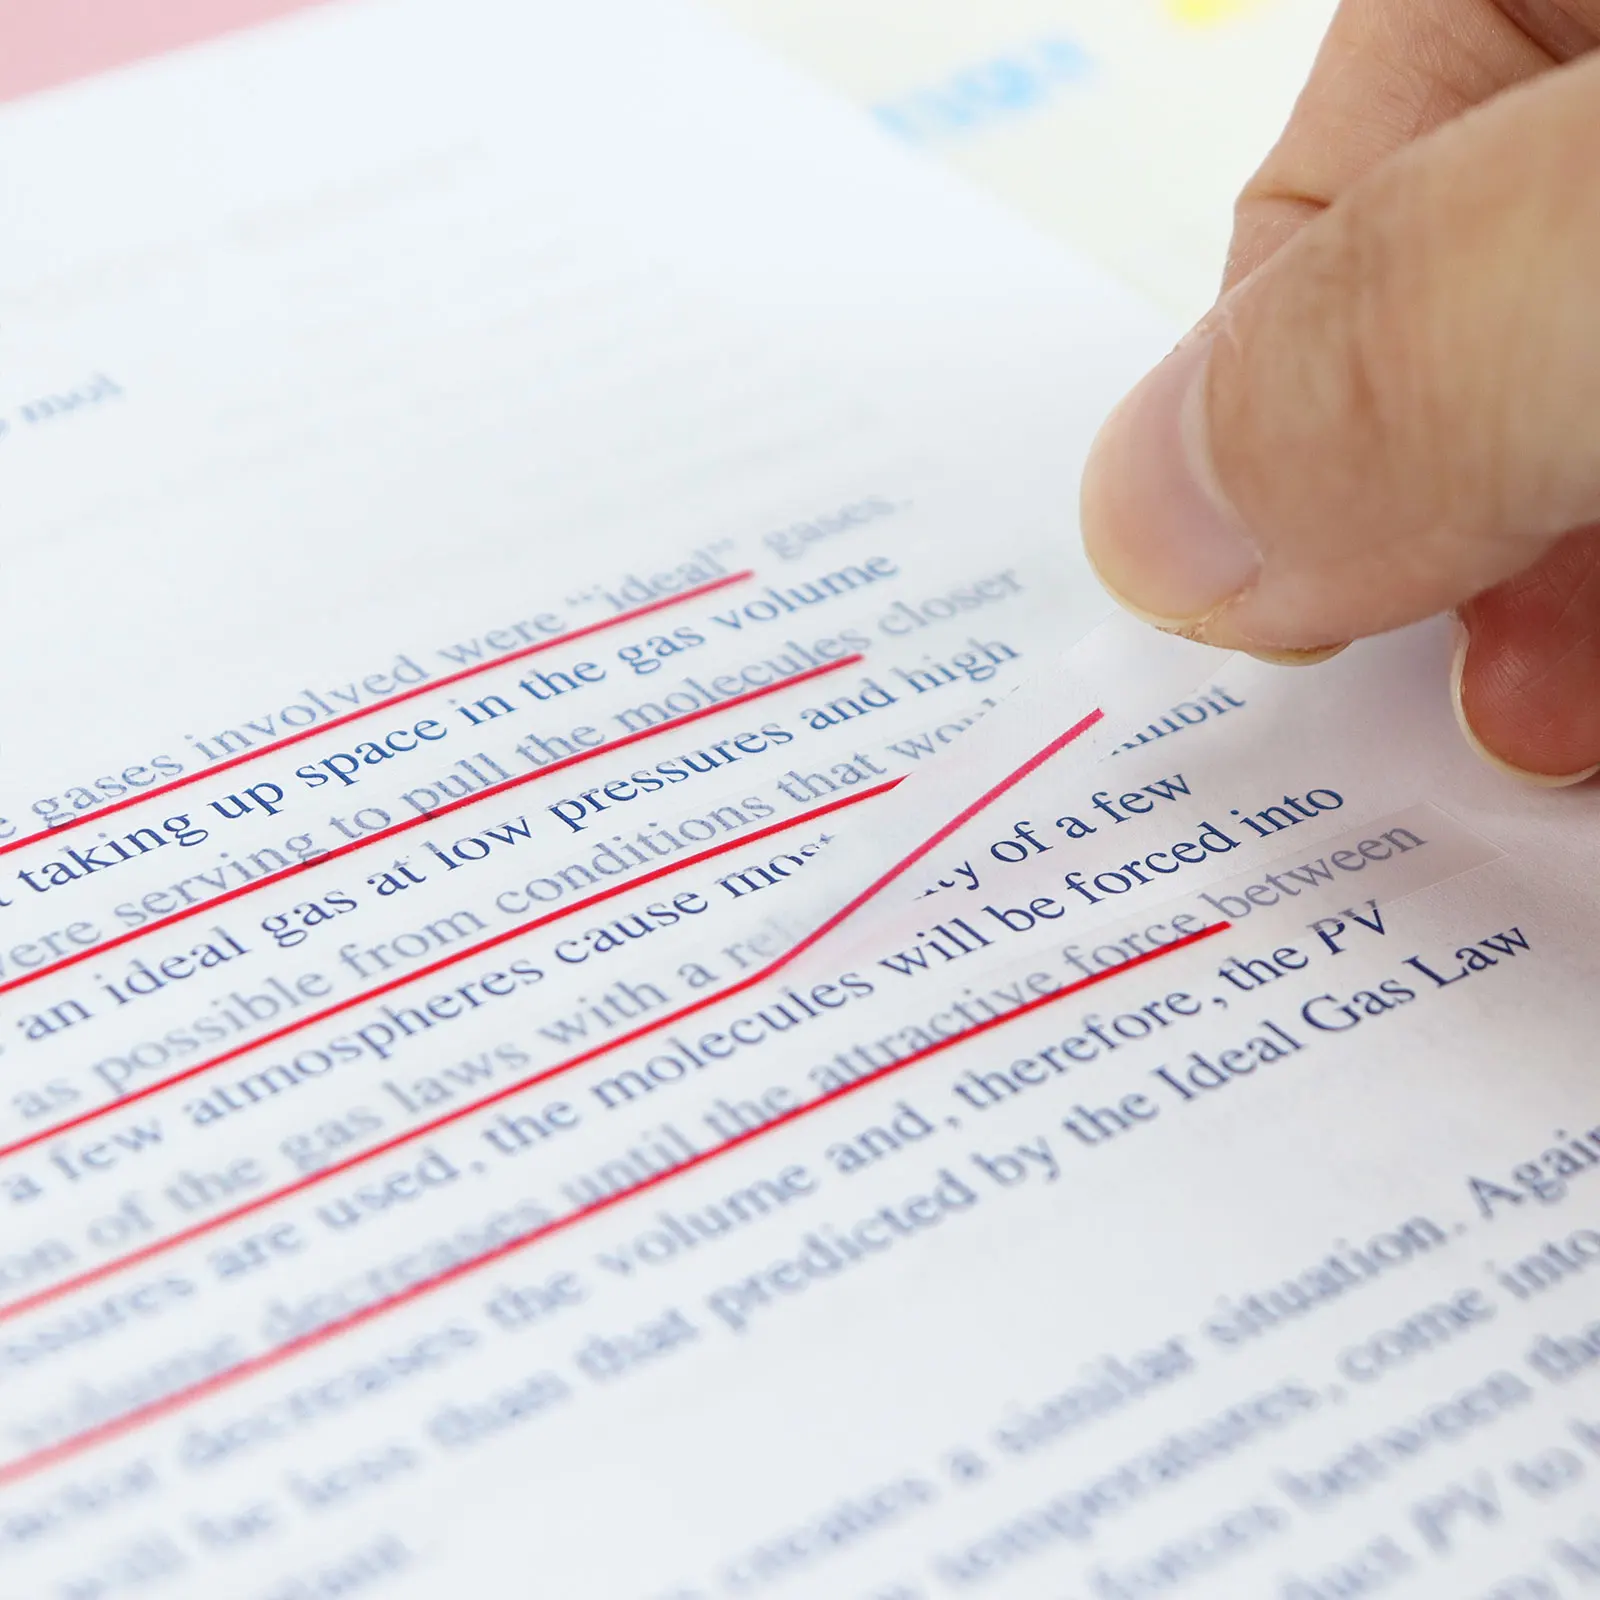 mol
gases involved were "ideal" gases.
taking up space in the gas volume
were serving to pull the molecules closer
an ideal gas at low pressures and high
as possible from conditions that
a few atmospheres cause most
of the gas laws with a of a few
are used, the molecules will be forced into
volume decreases until the attractive force between
decreases the volume and, therefore, the PV
will be less than that predicted by the Ideal Gas Law
creates a similar situation. Again
temperatures, come into
forces between the
PV to